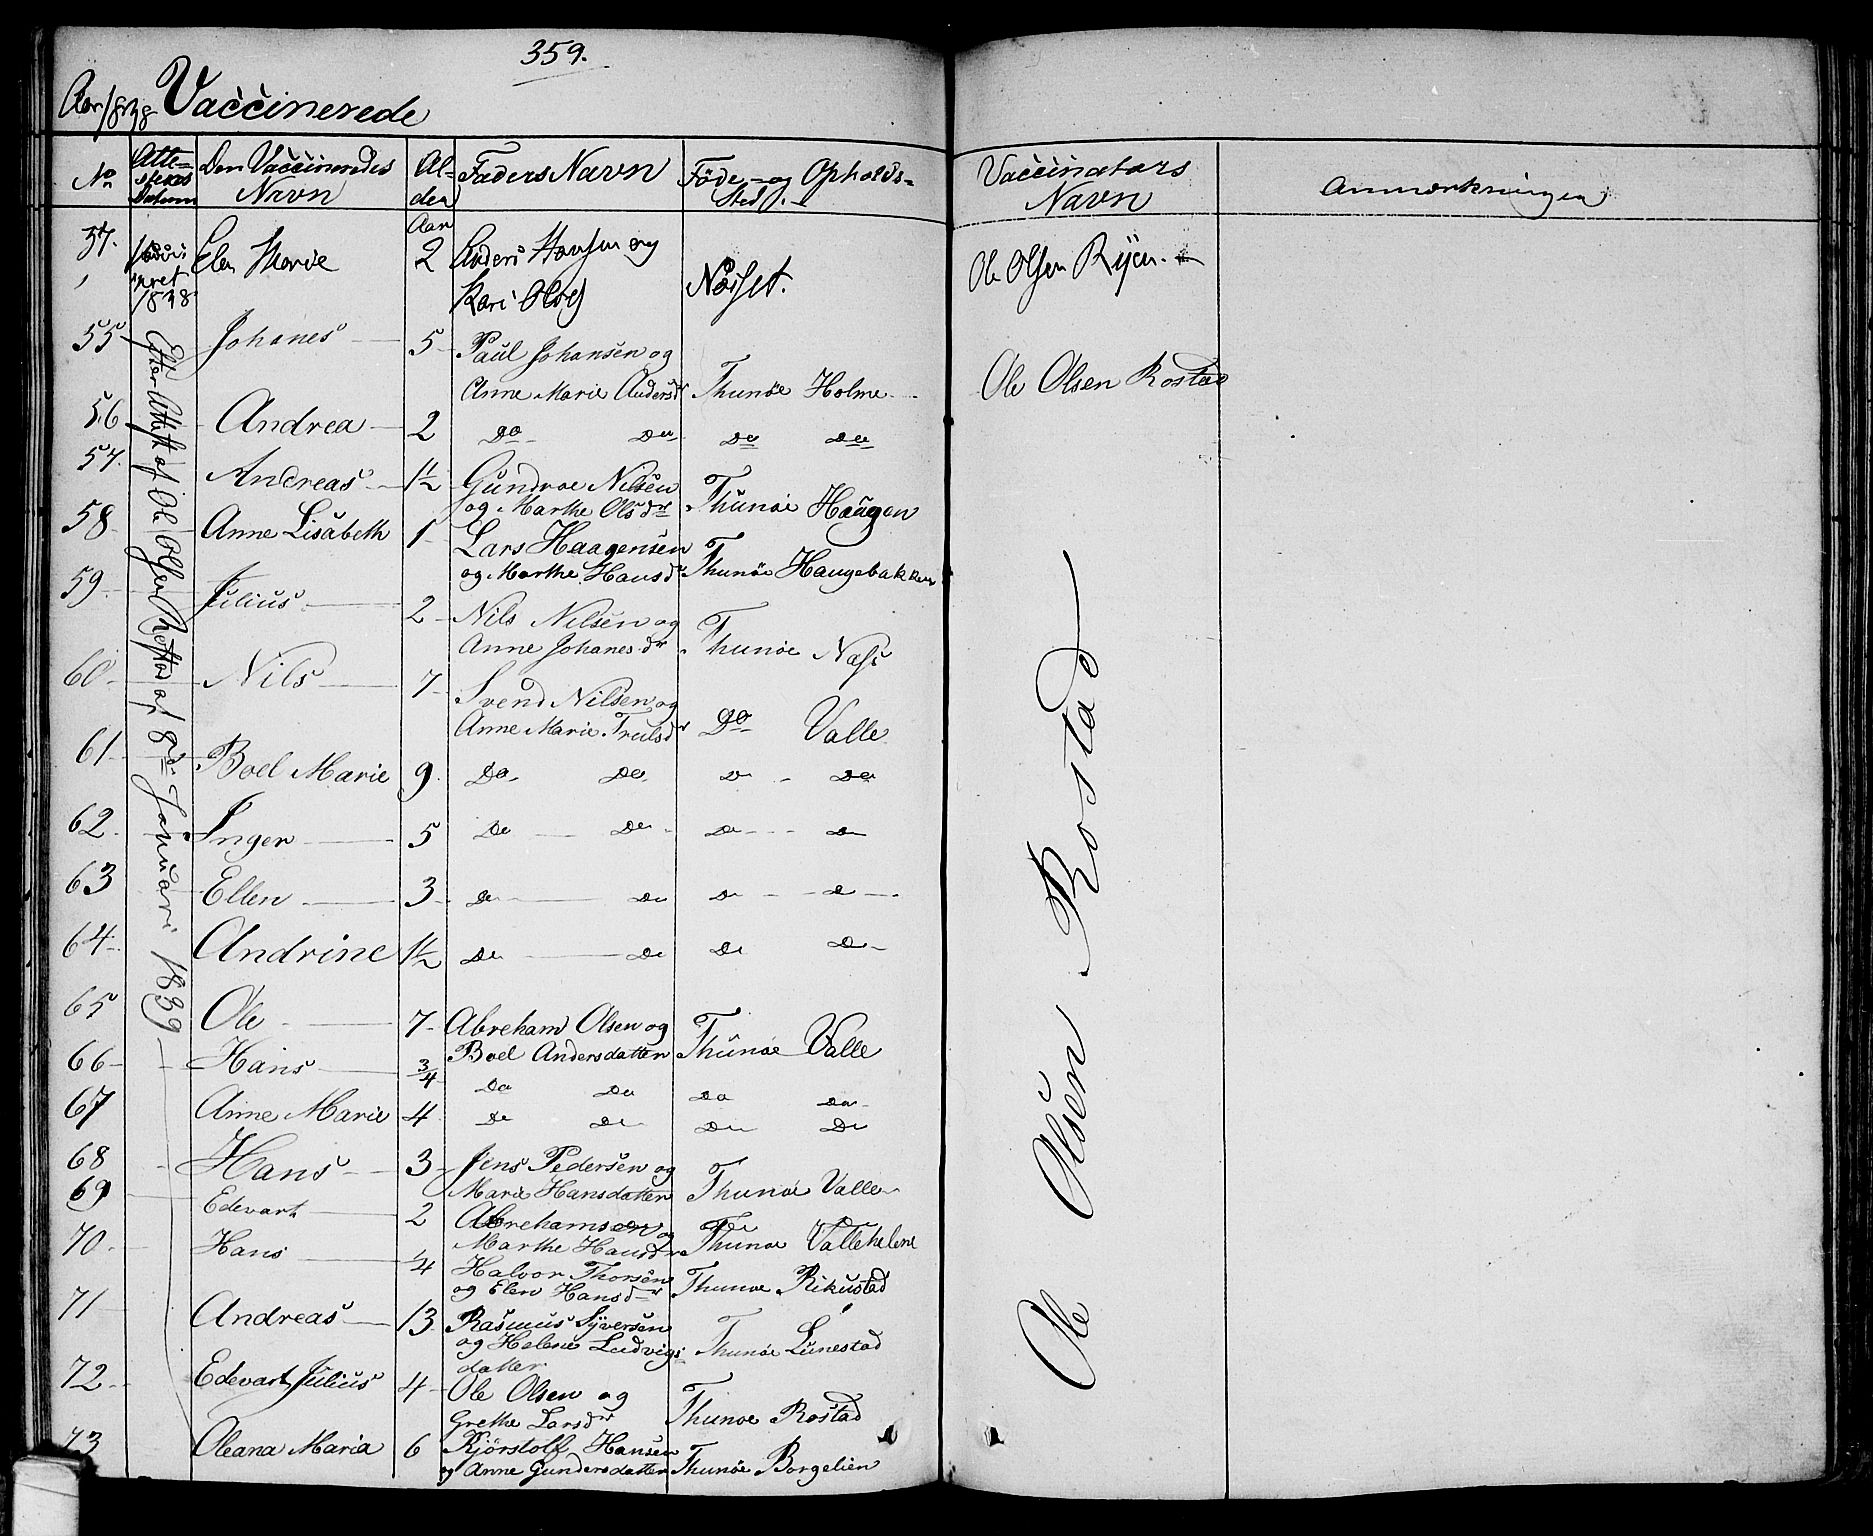 359.
Aar 1838 Vaccinerede
No Atte- Den Vaccineredes Al- Faders Navn Føde- og Opholds- Vaccinators Anmærkninger
stens Datum Navn der Sted Navn
Aar
57. Elen Marie 2 Anders Hansen og Ole Olsen Ryen
1838 Kari Olsd Næsset.
55 Johanes 5 Paul Johansen og
Anne Marie Andersdr Thunøe Holme Ole Olsen Rostad
56 Andrea 2 Do Do Do Do
57. Andreas 1½ Gundroe Nilsen
og Marthe Olsdr Thunøe Haugen
58 Anne Lisabeth 1 Lars Haagensen
og Marthe Hansdr Thunøe Haugebakken
59 Julius 2 Nils Nilsen og
Anne Johanesdr Thunøe Næss
60 Nils 7 Svend Nilsen og
Anne Marie Trulsdr Do Valle
61 Boel Marie 9 Do Do Do Do
62 Inger 5 Do Do Do Do
63 Ellen 3 Do Do Do Do
64 Andrine 1½ Do Do Do Do
65 Ole 7 Abreham Olsen og
Boel Andersdatter Thunøe Valle
66 Hans ¾ Do Do Do Do
67 Anne Marie 4 Do Do Do Do
68 Hans 3 Jens Pedersen og
Marie Hansdatter Thunøe Valle
69 Edevart 2 Do Do
70 Hans 4 Abrehamsen og
Marthe Hansdr Thunøe Vallehelene
Halvor Thorsen
og Elen Hansdr Thunøe Rikustad
71 Andreas 13 Rasmus Syversen
og Helene Ludvigs-
datter Thunøe Lunestad
72 Edevart Julius 4 Ole Olsen og
Grethe Larsdr Thunøe Rostad
73 Oleana Maria 6 Kjørstolf Hansen
og Anne Gundersdatter Thunøe Borgelien
Efter Attest af Ole Olsen Rostad af 8de Januari 1839
Ole Olsen Rostad